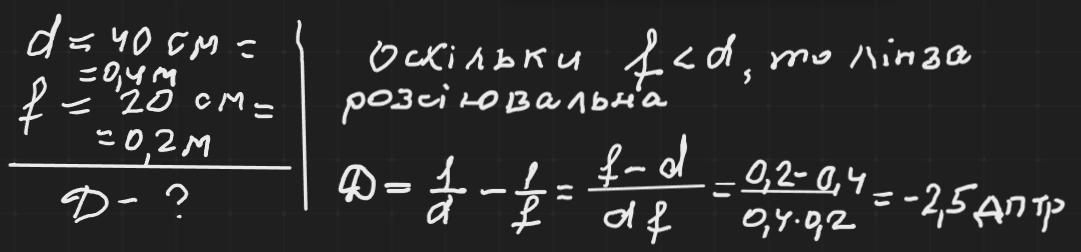 d = 40 см =
= 0,4 м
f = 20 см =
= 0,2 м
D - ?
Оскільки f < d, то лінза
розсіювальна
D = 1/d - 1/f = (f - d)/(d f) = (0,2 - 0,4)/(0,4 · 0,2) = -2,5 дптр